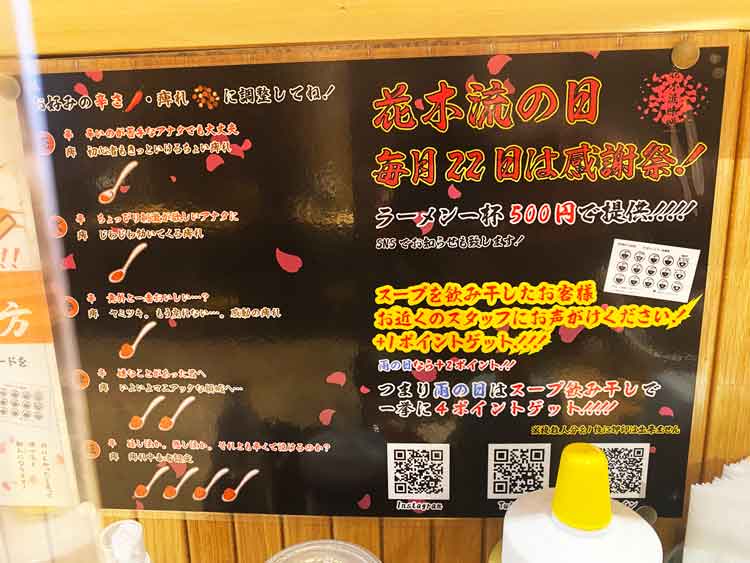 好みの辛さ・痺れ に調整してね!
辛 辛いのが苦手なアナタでも大丈夫
痺 初心者もきっといけるちょい痺れ
辛 ちょっぴり刺激が欲しいアナタに
痺 じわじわ効いてくる痺れ
辛 意外と一番おいしい…?
痺 ヤミツキ。もう戻れない…。
辛 嫌なことがあった君へ
痺 いよいよマニアックな領域へ…
それとも辛くて泣けるのか?
痺 痺れ中毒者認定
花木流の日
毎月22日は感謝祭!
ラーメン一杯500円で提供!!!!
SNSでお知らせも致します!
スープを飲み干したお客様
お近くのスタッフにお声がけください!
+1ポイントゲット!!!!
雨の日なら+2ポイント!!
つまり雨の日はスープ飲み干しで
一挙に4ポイントゲット!!!!
Instagram
方
ードを